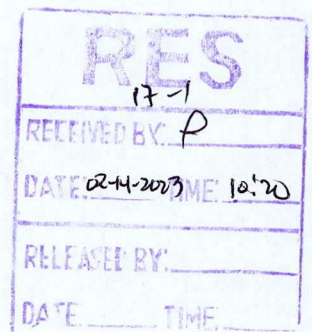 RES
17-1
RECEIVED BY: P
DATE: 02-14-2023 TIME: 10:20
RELEASED BY:
DATE TIME: